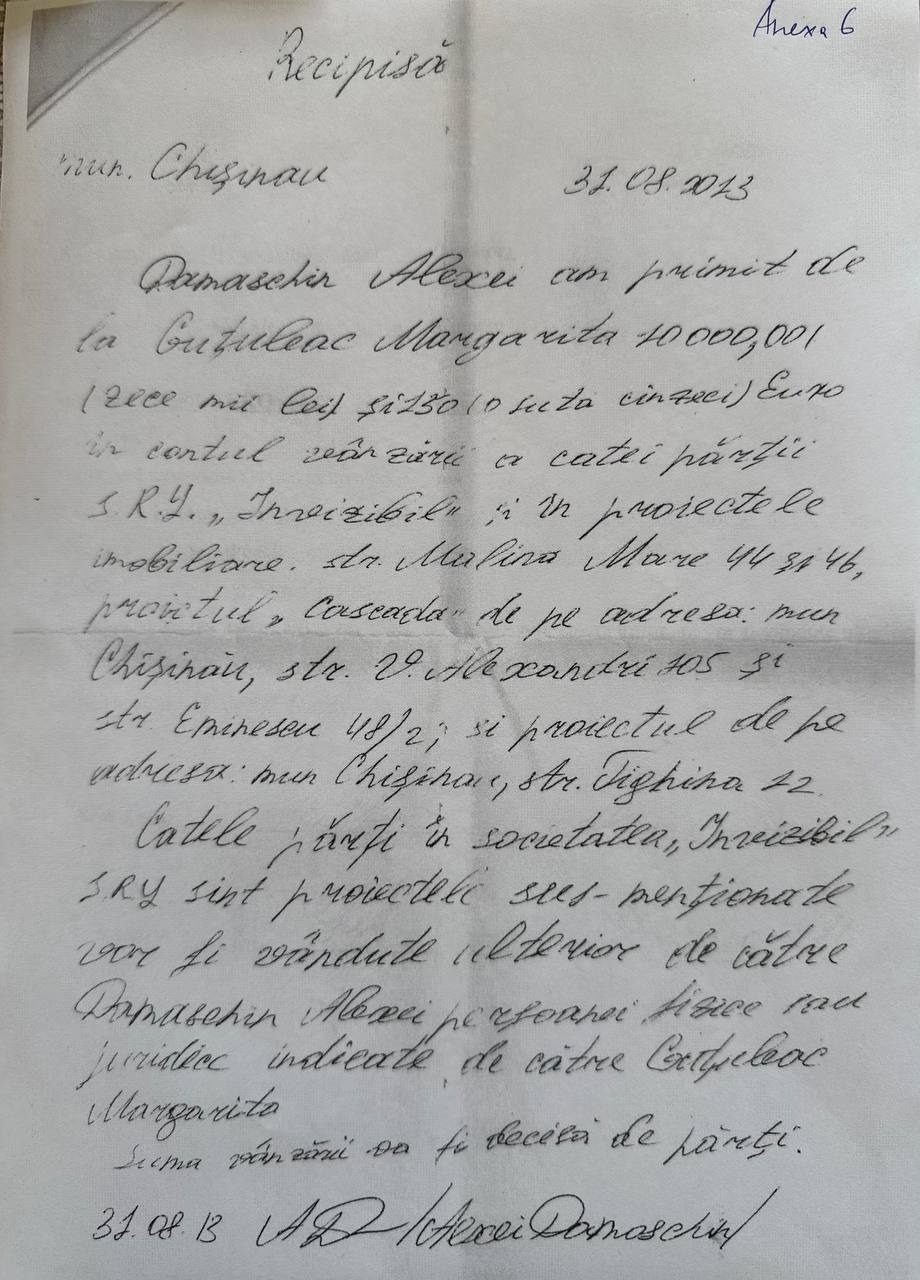 Anexa 6
Recipisă
mun. Chişinau 31.08.2013
Damaschin Alexei am primit de
la Guţuleac Margarita 10000,001
(zece mii lei) şi 150 (o suta cinzeci) Euro
in contul vânzării a catei părţii
S.R.L. „Invizibil" şi în proiectele
imobiliare. str. Malina Mare 44 şi 46,
proictul „Cascada" de pe adresa: mun
Chişinău, str. V. Alexandri 105 şi
str Eminescu 48/2; si proiectul de pe
adresa: mun Chişinau, str. Tighina 12.
Catele părţi în societatea „Invizibil"
S.R.L sint proiecteli sus-menţionate
vor fi vândute ulterior de către
Damaschin Alexei persoanei fizice sau
juridice indicate de către Guţuleac
Margarita
Suma vânzării va fi decisă de părţi.
31.08.13 /Alexei Damaschin/